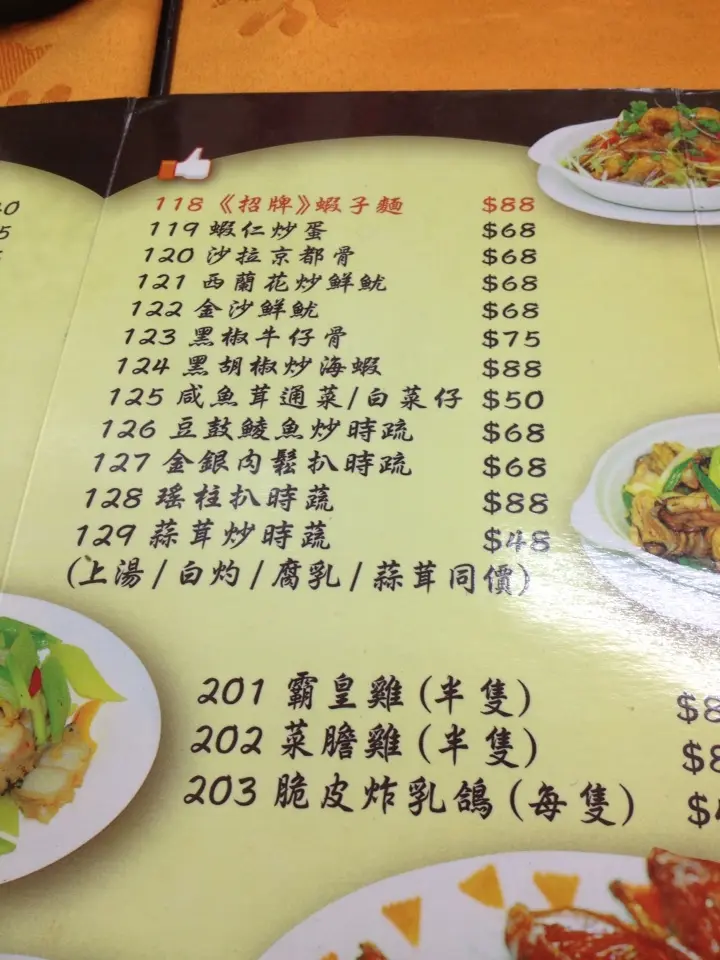 118《招牌》蝦子麵 $88
119 蝦仁炒蛋 $68
120 沙拉京都骨 $68
121 西蘭花炒鮮魷 $68
122 金沙鮮魷 $68
123 黑椒牛仔骨 $75
124 黑胡椒炒海蝦 $88
125 咸魚茸通菜/白菜仔 $50
126 豆鼓鯪魚炒時疏 $68
127 金銀肉鬆扒時疏 $68
128 瑤柱扒時蔬 $88
129 蒜茸炒時蔬 $48
(上湯/白灼/腐乳/蒜茸同價)
201 霸皇雞(半隻)
202 菜膽雞(半隻)
203 脆皮炸乳鴿(每隻)